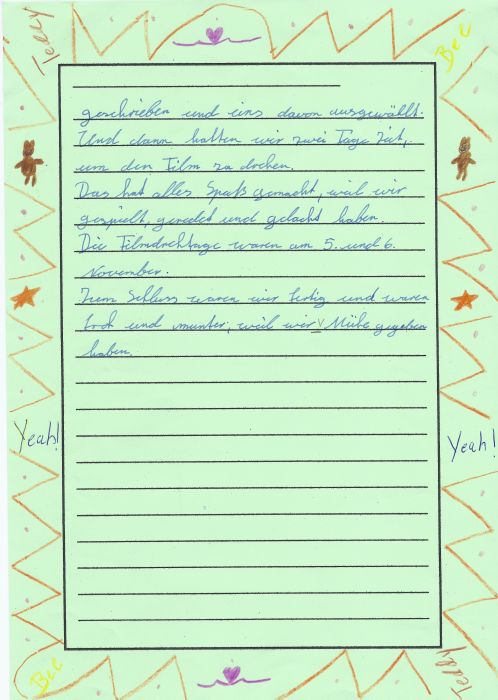 Teddy
Bee
geschrieben und eins davon ausgewählt.
Und dann hatten wir zwei Tage Zeit,
um den Film zu drehen.
Das hat alles Spaß gemacht, weil wir
gespielt, geredet und gelacht haben.
Die Filmdrehtage waren am 5. und 6.
November.
Zum Schluss waren wir fertig und waren
froh und munter, weil wir √ Mühe gegeben
haben.
Yeah!
Yeah!
Bee
Teddy